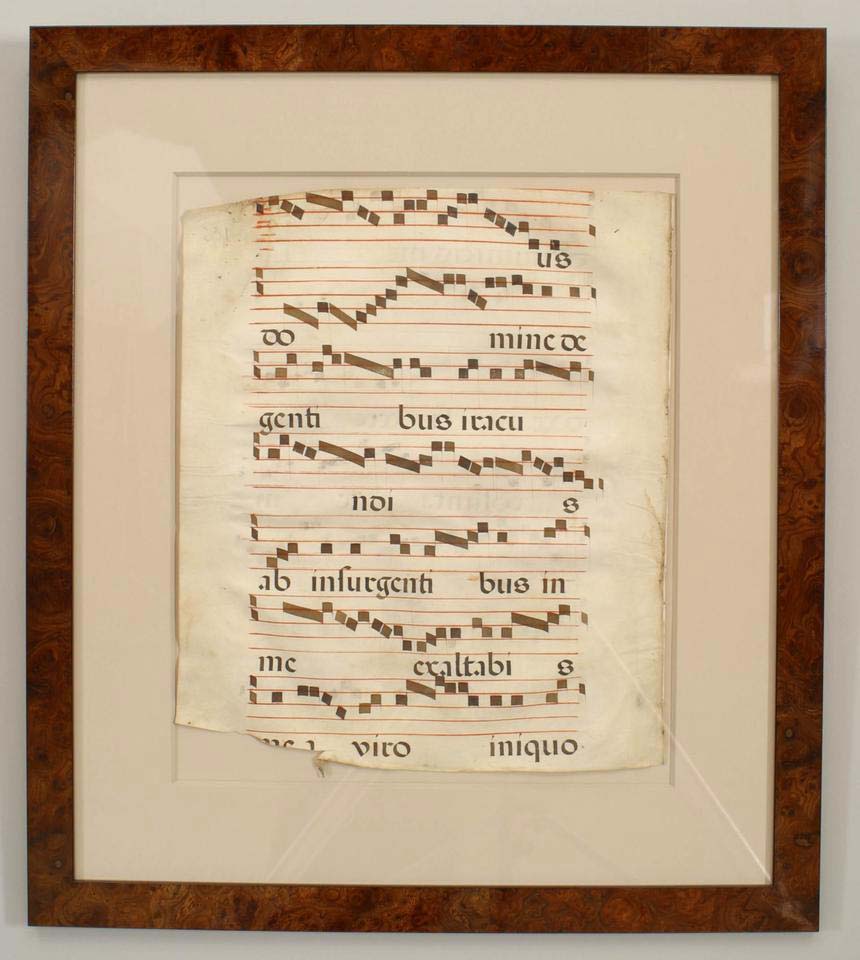 us
do mine de
genti bus iracu
ndi s
ab insurgenti bus in
me exaltabi s
me a viro iniquo